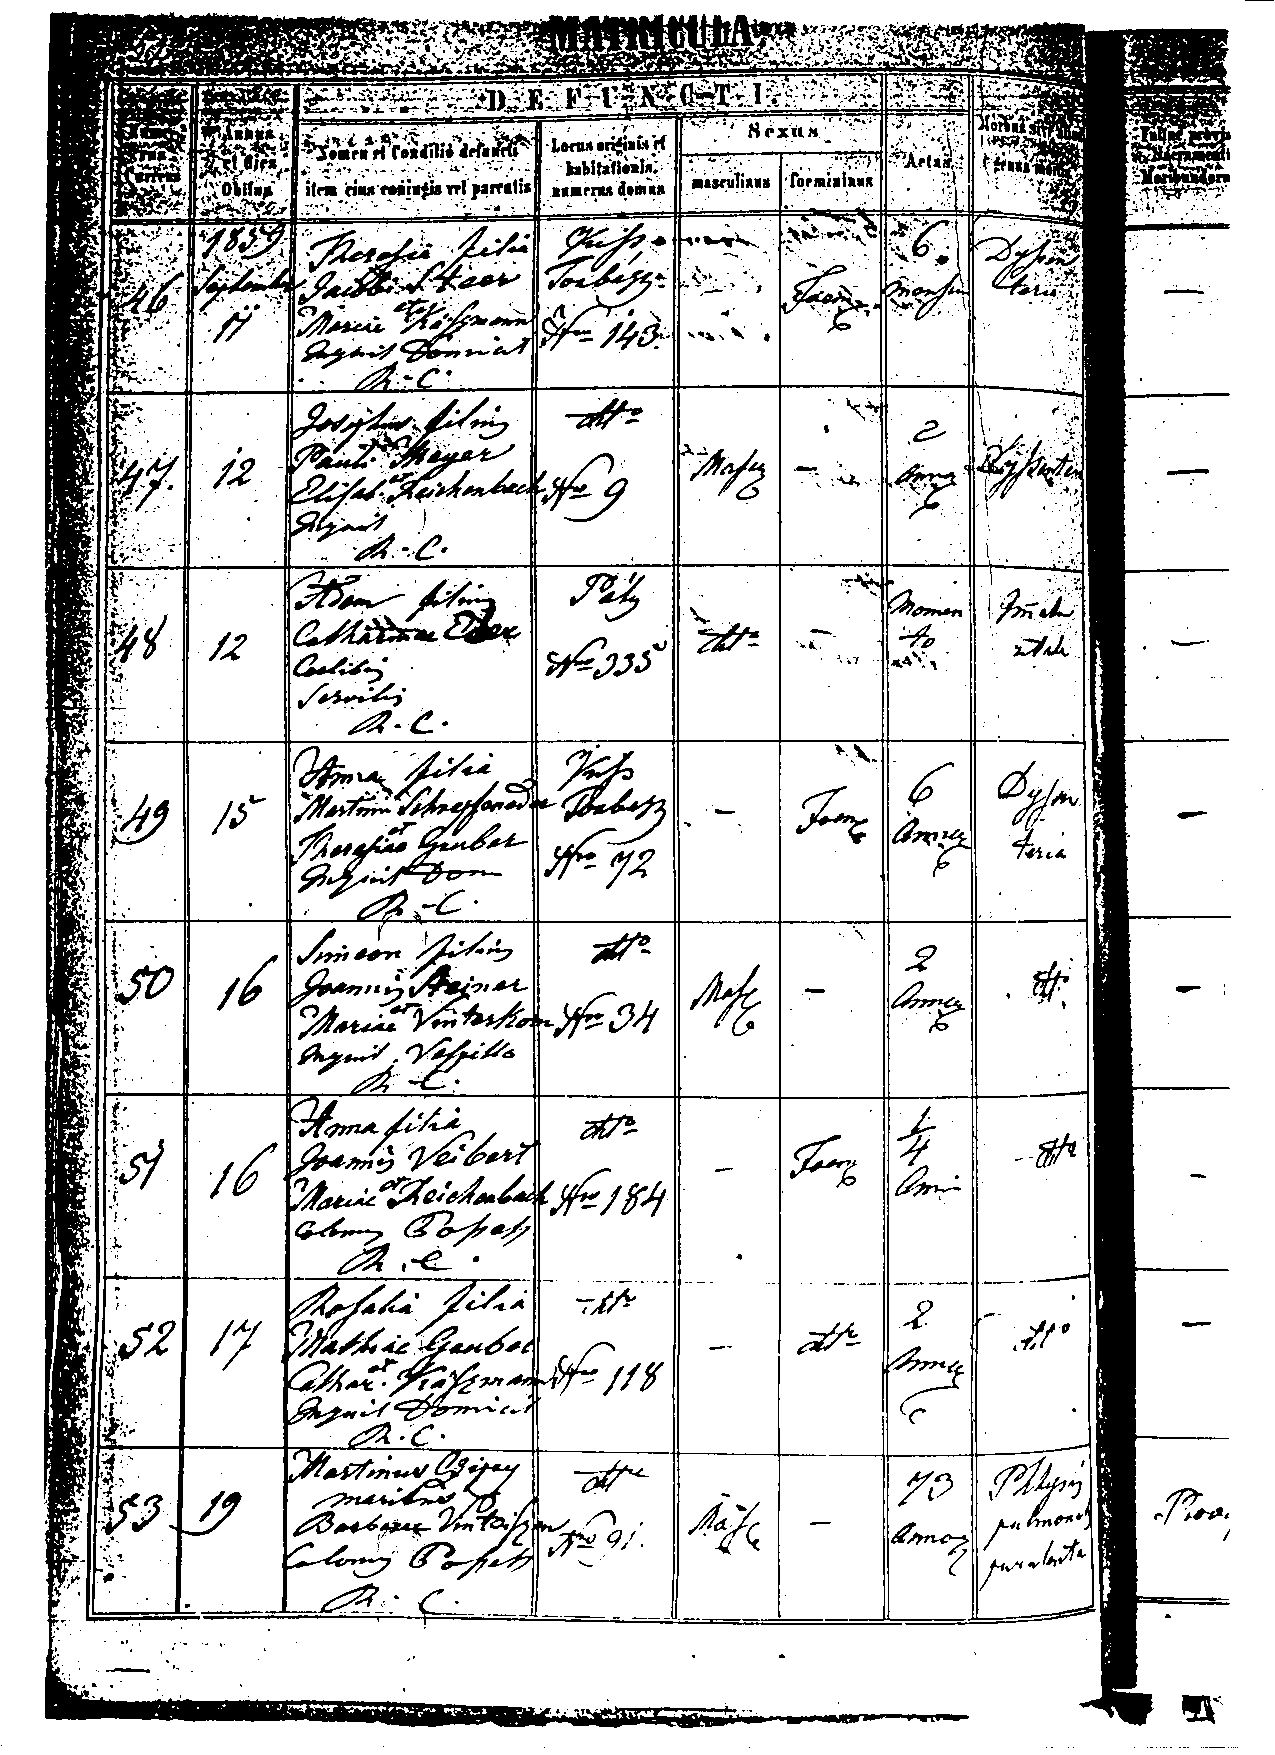 MATRICULA
DEFUNCTI.
Numerus Currens
Annus et Dies Obitus
Nomen et Conditio defuncti item eius coniugis vel parentis
Locus originis et habitationis, numerus domus
Sexus
masculinus
foemininus
Aetas
46
1859 September 11
Theresia filia
Jacobi Steer
et Mariae Käszmann
Inquil Domicil
R. C.
Kiss Torbágy
Nro 143.
Foem
6. mensium
Dysenteria
—
47.
12
Josephus filius
Pauli Mayer
et Elisab. Reichenbach
Inquil
R. C.
dtto
Nro 9
Masc
—
2 annor
Dyssenter
—
48
12
Adam filius
Catharinae Eder
Coelibis
Servilis
R. C.
Páty
Nro 335
dtto
—
Momento
—
49
15
Anna filia
Martini
et Theresiae Gauber
Inquil Dom
R. C.
Kiss Torbágy
Nro 72
—
Foem
6 Annor
Dysenteria
—
50
16
Simeon filius
Joannis Steiner
et Mariae Vinterkorn
Inquil Vespillo
R. C.
dtto
Nro 34
Masc
—
2 Annor
dtto
—
51
16
Anna filia
Joannis Veibert
et Mariae Reichenbach
Colonus
R. C.
dtto
Nro 184
—
Foem
1/4 Anni
dtto
—
52
17
Rosalia filia
Mathiae Gaubel
et Cathar. Käszmann
Inquil Domicil
R. C.
dtto
Nro 118
—
dtto
2 Annor
dtto
—
53
19
Martinus
maritus
Barbarae
Colonus
R. C.
dtto
Nro 91.
Masc
—
73 Annor
Phtysis pulmonum purulenta